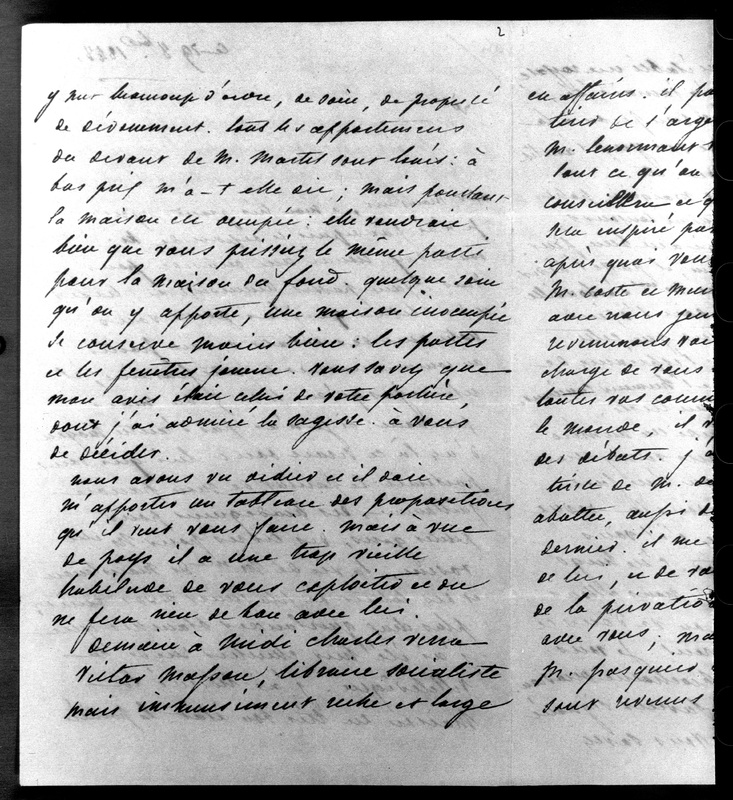 2
y met beaucoup d'ordre, de soin, de propreté
de dévouement. tous les appartemens
du devant de M. Martel sont loués : à
bas prix m'a-t elle dit ; mais pourtant
la maison est occupée : elle voudrait
bien que vous prissiez le même parti
pour la maison du fond. quelque soin
qu'on y apporte, une maison inoccupée
se conserve moins bien : les portes
et les fenêtres jouent. vous savez que
mon avis était celui de votre portière,
dont j'ai admiré la sagesse. à vous
de décider.
nous avons vu didier et il doit
m'apporter un tableau des propositions
qu'il veut vous faire. mais à vue
de pays il a une trop vieille
habitude de vous exploiter et on
ne fera rien de bon avec lui.
demain à midi charles verra
victor masson, libraire socialiste
mais immensément riche et large
en affaires. il
tenir de l'arge
M. lenormant
tout ce qu'on
conseillera et q
sera inspiré pa
après quoi vou
M. coste et
avec nous
reviennons
charge de vous
toutes vos comm
le monde, il
des débats. j'a
triste de M. de
abattu, aussi
dernier. il me
de lui, et de vo
de la privation
avec vous ; ma
M. pasquier
sont revenus